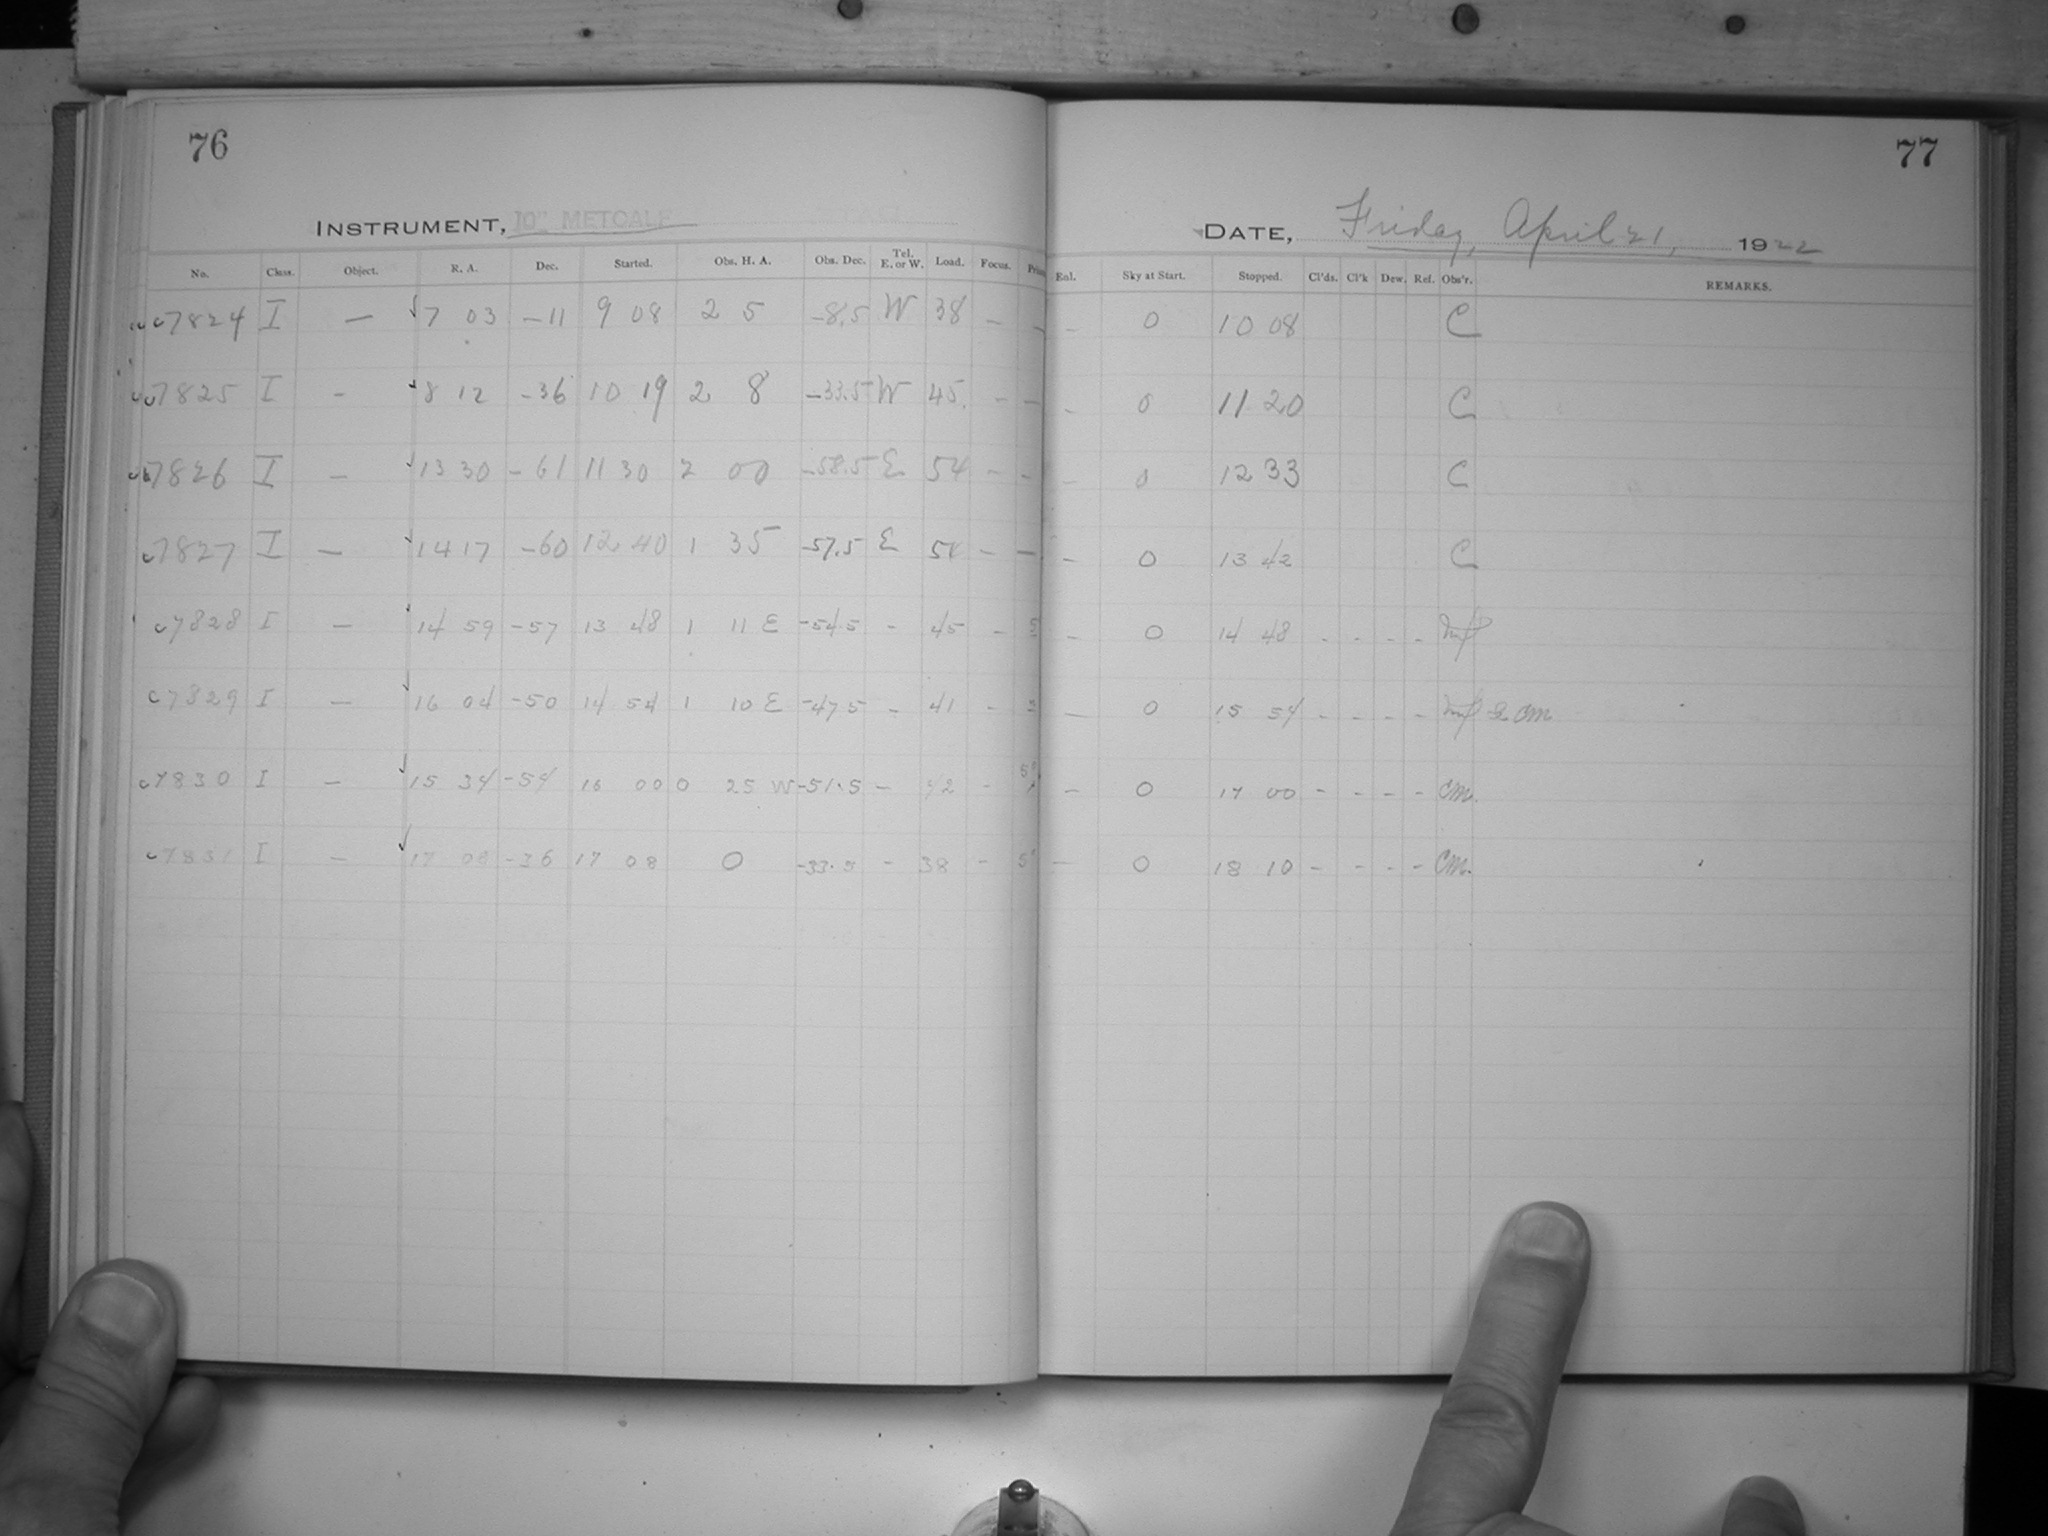 76
77
INSTRUMENT, 10" METCALF
DATE, Friday, April 21, 1922
No. Class. Object. R. A. Dec. Started. Obs. H. A. Obs. Dec. Tel. E. or W. Load. Focus. Eal. Sky at Start. Stopped. Cl'ds. Cl'k Dew. Ref. Obs'r. REMARKS.
7824 I — 7 03 -11 9 08 2 5 -8.5 W 38 – – – 0 10 08 C
7825 I - 8 12 -36 10 19 2 8 -33.5 W 45 - – - 0 11 20 C
7826 I - 13 30 -61 11 30 2 00 -58.5 E 54 - - - 0 12 33 C
7827 I — 14 17 -60 12 40 1 35 -57.5 E – — - 0 13 42 C
7828 I — 14 59 -57 13 48 1 11 E -54.5 - 45 - 5 - 0 14 48 - - - -
7829 I — 16 04 -50 14 54 1 10 E -47.5 - 41 - — 0 15 54 - - - - & CM
7830 I — 15 34 -54 16 00 0 25 W -51.5 - 42 - – 0 17 00 - - - - CM.
7831 I — 17 08 -36 17 08 0 -33.5 - 38 - — 0 18 10 - - - - CM.